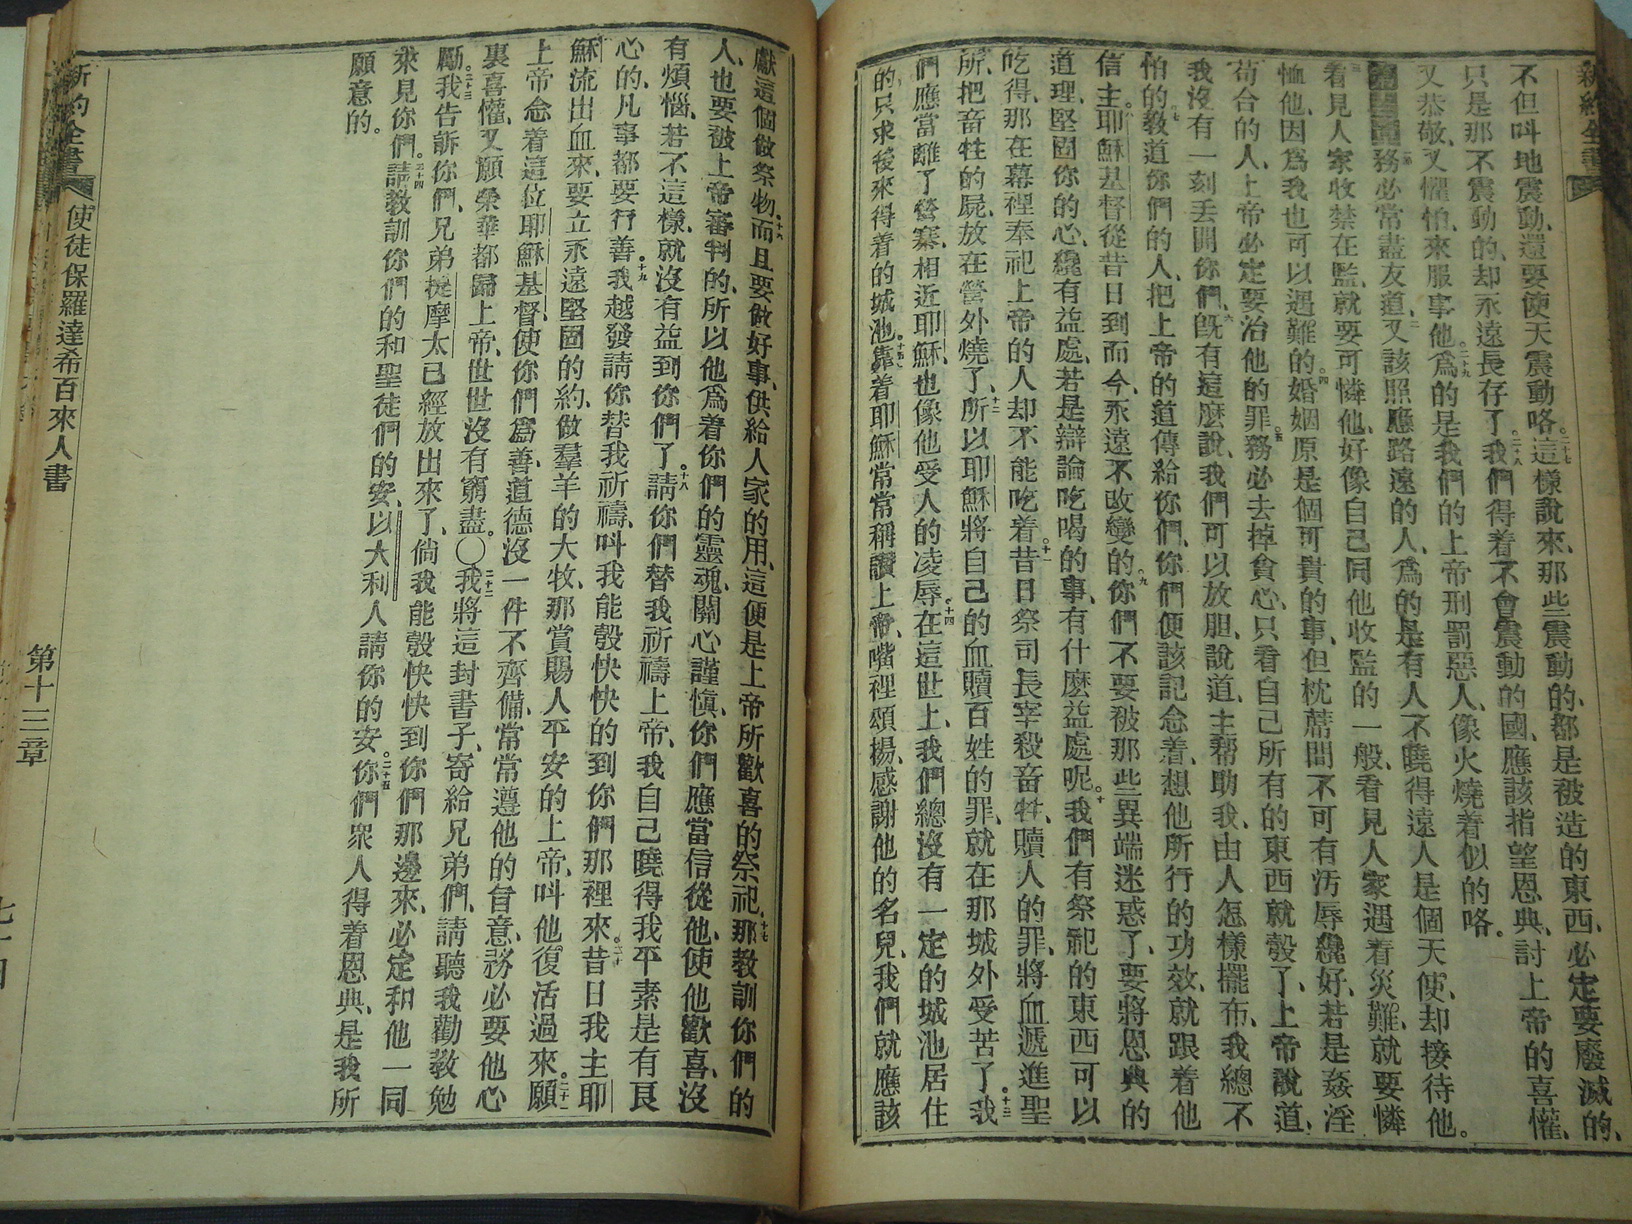 新約全書
不但叫地震動、還要使天震動咯。二十七這樣說來、那些震動的、都是被造的東西、必定要廢滅的、
只是那不震動的、却永遠長存了。二十八我們得着不會震動的國、應該指望恩典、討上帝的喜懽、
又恭敬、又懼怕、來服事他。二十九爲的是我們的上帝刑罰惡人、像火燒着似的咯。
務必常盡友道、二又該照應路遠的人、爲的是有人不曉得遠人是個天使、却接待他。
三看見人家收禁在監、就要可憐他、好像自己同他收監的一般、看見人家遇着災難、就要憐
恤他、因爲我也可以遇難的。四婚姻原是個可貴的事、但枕蓆間不可有污辱纔好、若是姦淫
苟合的人、上帝必定要治他的罪。五務必去掉貪心、只看自己所有的東西就彀了、上帝說道、
我沒有一刻丟開你們、六旣有這麼說、我們可以放胆、說道、主幫助我、由人怎樣擺布、我總不
怕的。七教道你們的人、把上帝的道傳給你們、你們便該記念着、想他所行的功效、就跟着他
信主。八耶穌基督從昔日到而今、永遠不改變的。九你們不要被那些異端迷惑了、要將恩典的
道理、堅固你的心、纔有益處、若是辯論吃喝的事、有什麽益處呢。十我們有祭祀的東西可以
吃得、那在幕裡奉祀上帝的人却不能吃着。十一昔日祭司長宰殺畜牲、贖人的罪、將血遞進聖
所、把畜牲的屍、放在營外燒了、十二所以耶穌將自己的血贖百姓的罪、就在那城外受苦了。十三我
們應當離了營寨、相近耶穌、也像他受人的凌辱。十四在這世上、我們總沒有一定的城池居住
的、只求後來得着的城池。十五靠着耶穌常常稱讚上帝、嘴裡頌揚、感謝他的名兒、我們就應該
獻這個做祭物。十六而且要做好事、供給人家的用、這便是上帝所歡喜的祭祀、十七那教訓你們的
人、也要被上帝審判的、所以他爲着你們的靈魂、關心謹愼、你們應當信從他、使他歡喜、沒
有煩惱、若不這樣、就沒有益到你們了。十八請你們替我祈禱上帝、我自己曉得我平素是有良
心的、凡事都要行善。十九我越發請你替我祈禱、叫我能彀快快的到你們那裡來。二十昔日我主耶
穌流出血來、要立永遠堅固的約、做羣羊的大牧、那賞賜人平安的上帝、叫他復活過來。二十一願
上帝念着這位耶穌基督、使你們爲善、道德沒一件不齊備、常常遵他的旨意、務必要他心
裏喜懽、又願榮華都歸上帝、世世沒有窮盡。〇二十二我將這封書子、寄給兄弟們、請聽我勸教勉
勵。二十三我告訴你們、兄弟提摩太已經放出來了、倘我能彀快快到你們那邊來、必定和他一同
來見你們。二十四請教訓你們的和聖徒們的安、以大利人請你的安。二十五你們衆人得着恩典、是我所
願意的。
新約全書 使徒保羅達希百來人書 第十三章